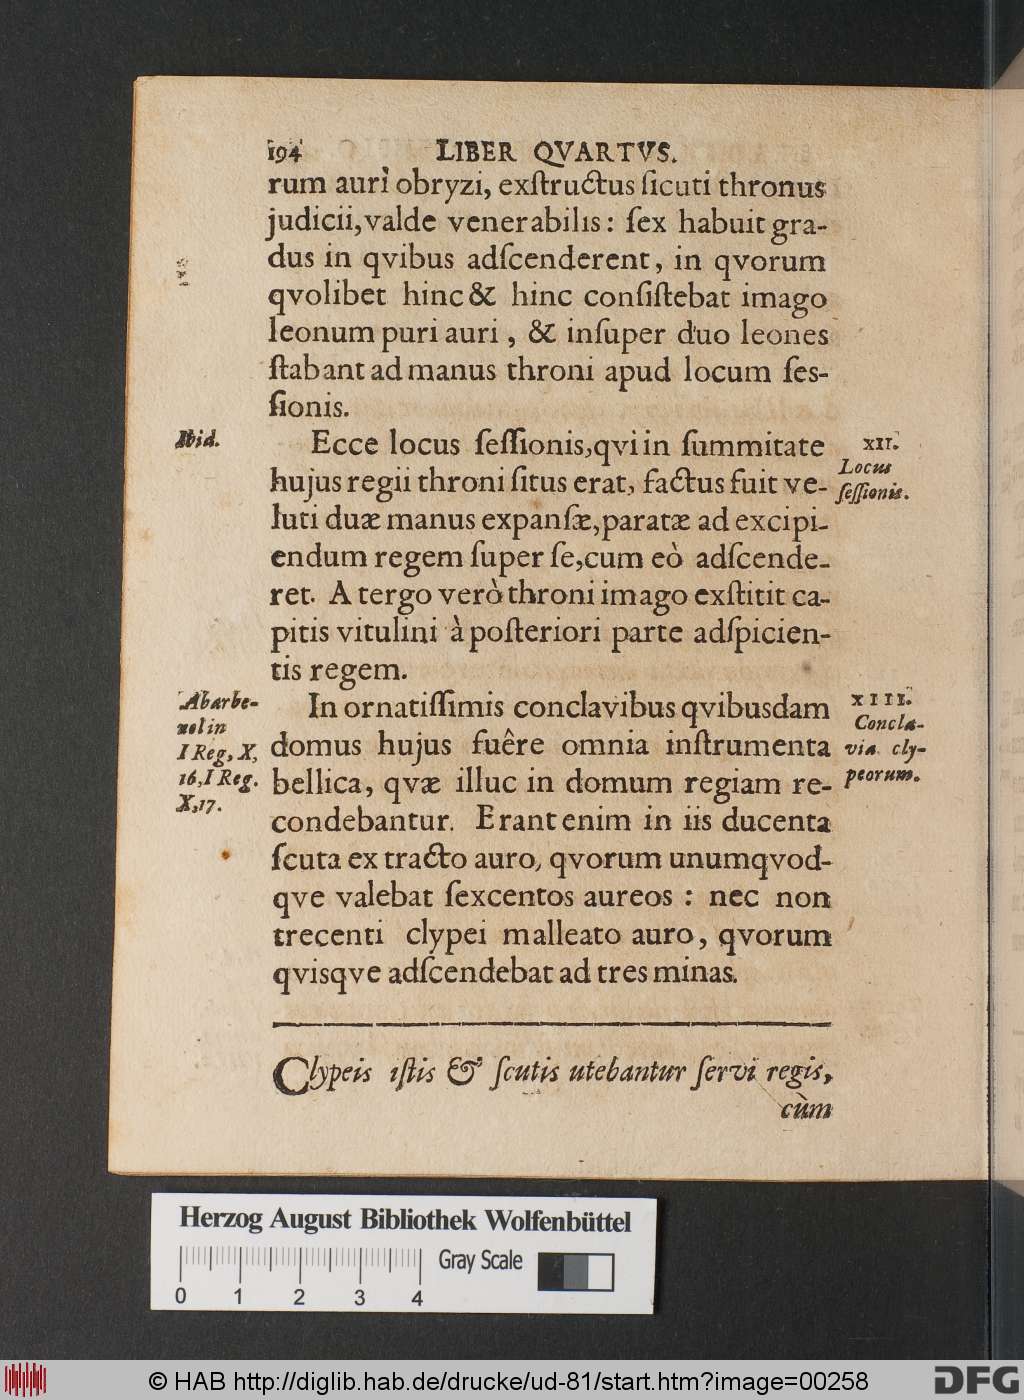 194 LIBER QVARTVS.
rum auri obryzi, exſtructus ſicuti thronus
judicii, valde venerabilis: ſex habuit gra-
dus in qvibus adſcenderent, in qvorum
qvolibet hinc & hinc conſiſtebat imago
leonum puri auri, & inſuper duo leones
ſtabant ad manus throni apud locum ſes-
ſionis.
Ibid.
Ecce locus ſeſſionis, qvi in ſummitate
XII.
Locus
ſeſſionis.
hujus regii throni ſitus erat, factus fuit ve-
luti duæ manus expanſæ, paratæ ad excipi-
endum regem ſuper ſe, cum eò adſcende-
ret. A tergo verò throni imago exſtitit ca-
pitis vitulini à poſteriori parte adſpicien-
tis regem.
Abarbe-
nel in
I Reg, X,
16, I Reg.
X, 17.
In ornatiſſimis conclavibus qvibusdam
XIII.
Concla-
via cly-
peorum.
domus hujus fuêre omnia inſtrumenta
bellica, qvæ illuc in domum regiam re-
condebantur. Erant enim in iis ducenta
ſcuta ex tracto auro, qvorum unumqvod-
qve valebat ſexcentos aureos: nec non
trecenti clypei malleato auro, qvorum
qvisqve adſcendebat ad tres minas.
Clypeis iſtis & ſcutis utebantur ſervi regis,
cùm
Herzog August Bibliothek Wolfenbüttel
Gray Scale
0 1 2 3 4
© HAB http://diglib.hab.de/drucke/ud-81/start.htm?image=00258
DFG